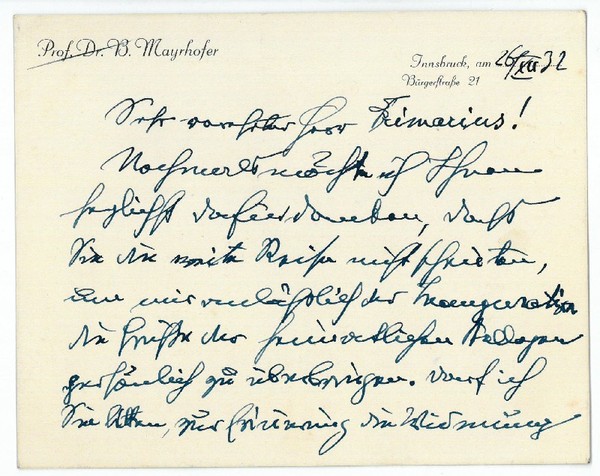 Prof. Dr. B. Mayrhofer
Innsbruck, am 26/XII 32
Bürgerstraße 21
Sehr verehrter Herr Primarius!
Nochmals möchte ich Ihnen
herzlichst dafür danken, dass
Sie die weite Reise nicht scheuten,
um mir anlässlich der Inauguration
die Grüße der heimatlichen Kollegen
persönlich zu überbringen. Darf ich
Sie bitten, zur Erinnerung die Widmung